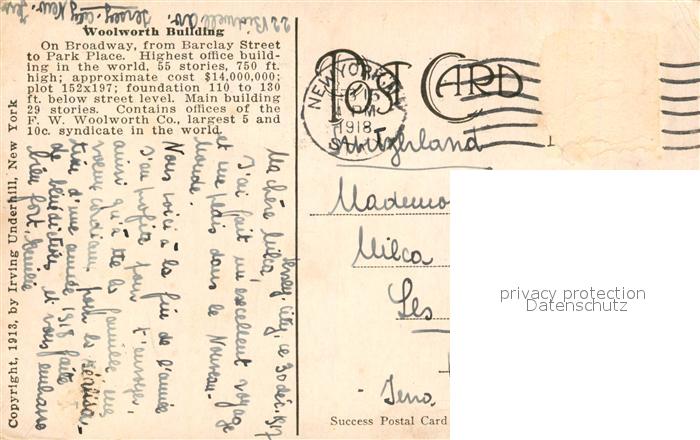 22 Bidwell Av. Jersey-City New-Jers
Woolworth Building
On Broadway, from Barclay Street
to Park Place. Highest office build-
ing in the world, 55 stories, 750 ft.
high; approximate cost $14,000,000;
plot 152x197; foundation 110 to 130
ft. below street level. Main building
29 stories. Contains offices of the
F. W. Woolworth Co., largest 5 and
10c. syndicate in the world.
Copyright, 1913, by Irving Underhill, New York
Jersey-City, ce 30 déc. 1917
Ma chère Milca,
J'ai fait un excellent voyage
et me plais dans le Nouveau-
Monde.
Nous voici à la fin de l'année
J'en profite pour t'envoyer,
ainsi qu'à tte la famille mes
voeux cordiaux pour la réalisa-
tion d'une année 1918 faite
de bénédictions et vous embrasse
bien fort.
POST CARD
NEW YORK, N.Y.
PM
1918
Switzerland
Mademo
Milca
Les
Success Postal Card
privacy protection
Datenschutz